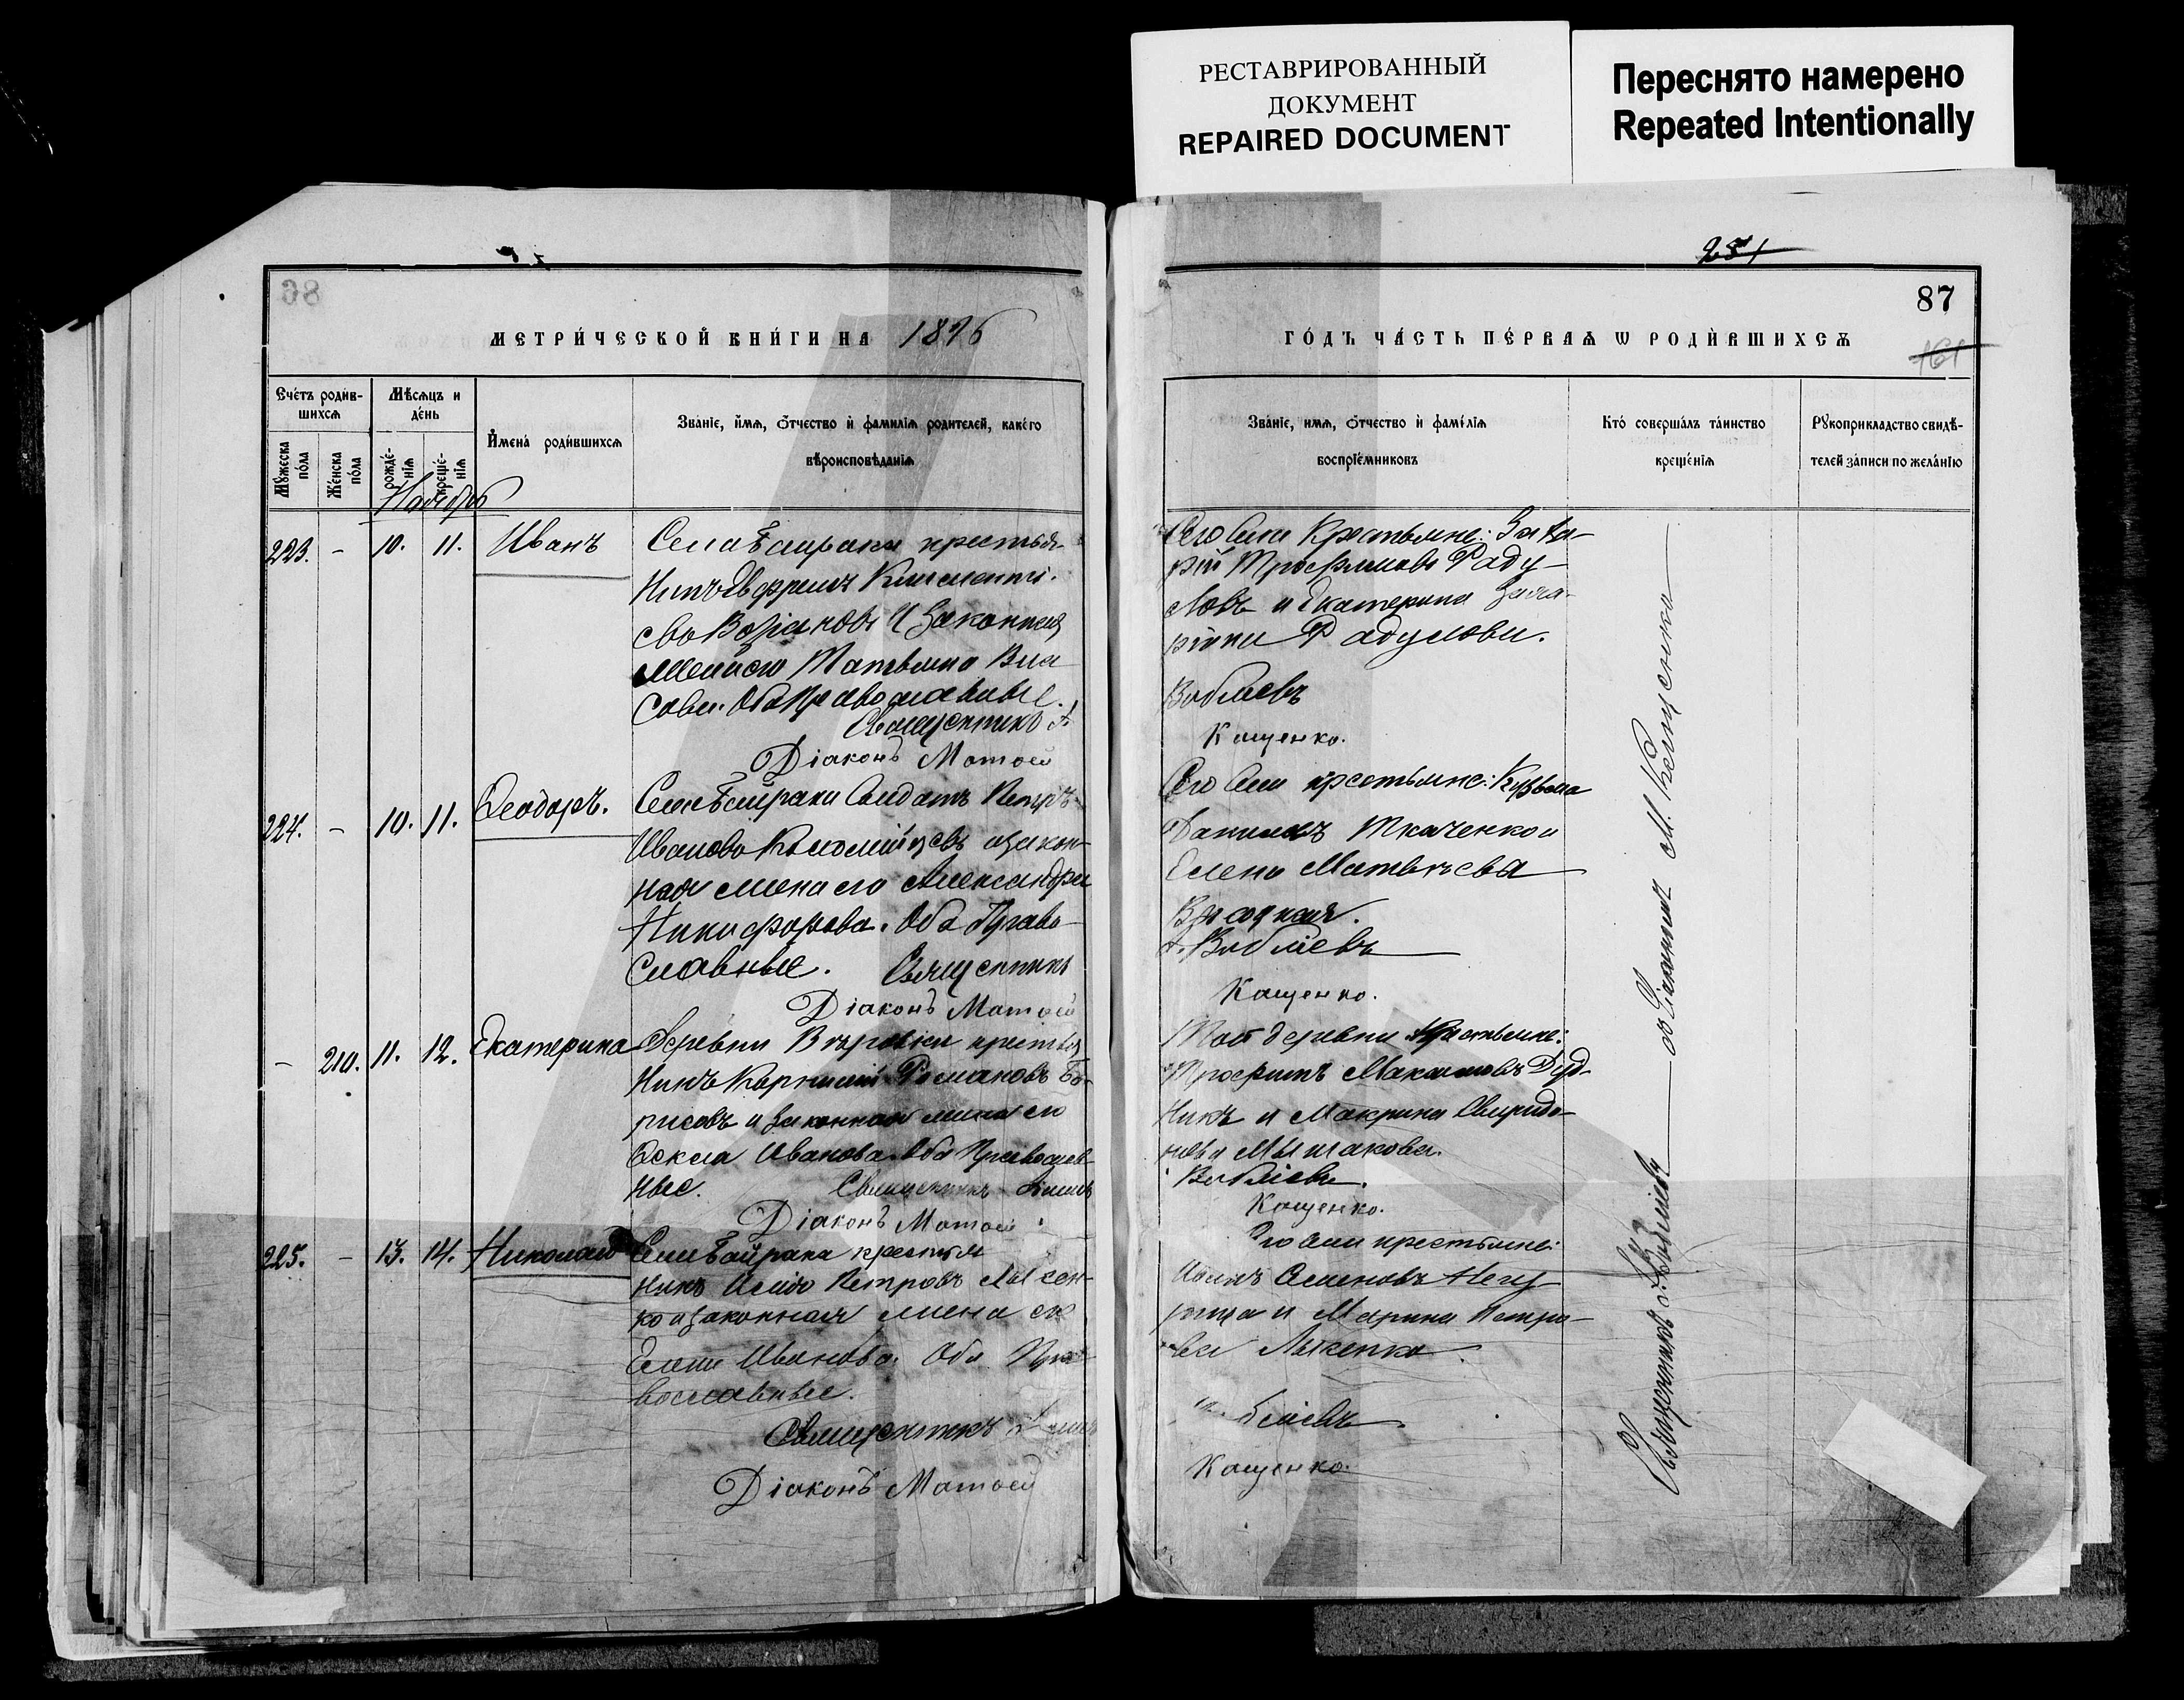 РЕСТАВРИРОВАННЫЙ
ДОКУМЕНТ
REPAIRED DOCUMENT
Переснято намерено
Repeated Intentionally
251
86
87
161
МЕТРИ́ЧЕСКОЙ КНИ́ГИ НА 1876
ГО́ДЪ ЧА́СТЬ ПЕ́РВАѦ Ѡ РОДИ́ВШИХСѦ
Счётъ роди́в-
шихсѧ
Мѣсѧцъ и
де́нь
Мꙋжеска
по́ла
Же́нска
по́ла
рожде́-
нїѧ
креще́-
нїѧ
И҆мена̀ роди́вшихсѧ
Зва́нїе, и҆́мѧ, ѻ҆́тчество и҆ фами́лїѧ роди́телей, како́гѡ
вѣроисповѣ́данїѧ
Зва́нїе, и҆́мѧ, ѻ҆́тчество и҆ фами́лїѧ
воспрїе́мниковъ
Кто́ соверша́лъ та́инство
креще́нїѧ
Рꙋкоприкла́дство свидѣ́-
телей за́писи по жела́нїю
Ноябрь
223. - 10. 11. Иванъ
Села Байрака крестья-
нинъ Ефремъ Климентi-
евъ и законная
жена его Татьяна Вла
сова. Оба Православные.
Священникъ А
Дiаконъ Матѳей
Сего Села Крестьяне: Заха-
рiй Трофимовъ Раду-
ловъ и Екатерина Заха-
рiина Радулова.
Воблiевъ
Кащенко.
224. - 10. 11. Ѳеодоръ.
Села Байрака Солдатъ Петръ
Ивановъ Коломiйцевъ и закон-
ная жена его Александра
Никифорова. Оба Право-
славные. Священникъ
Дiаконъ Матѳей
Сего Села крестьяне: Кузьма
Даниловъ Ткаченко и
Елена Матвѣева
А. Воблiевъ
Кащенко.
- 210. 11. 12. Екатерина
Деревни Вѣровки крестья
нинъ Корнилiй Романовъ Бо-
рисовъ и законная жена его
Ѳекла Иванова. Оба Православ-
ные. Священникъ
Дiаконъ Матѳей
Той деревни Крестьяне:
Трофимъ Максимовъ Дуд-
никъ и Макрина Свиридо-
нова
Воблiевъ.
Кащенко.
225. - 13. 14. Николай
Села Байрака крестья
нинъ Петровъ Лысен-
ко и законная жена его
Елена Иванова. Оба Пра
вославные.
Священникъ
Дiаконъ Матѳей
Сего Села крестьяне:
Семеновъ
и Марина Петро-
ва Лысенко.
Воблiевъ
Кащенко.
Священникъ А. Воблiевъ — съ Дiакономъ М. Кащенко